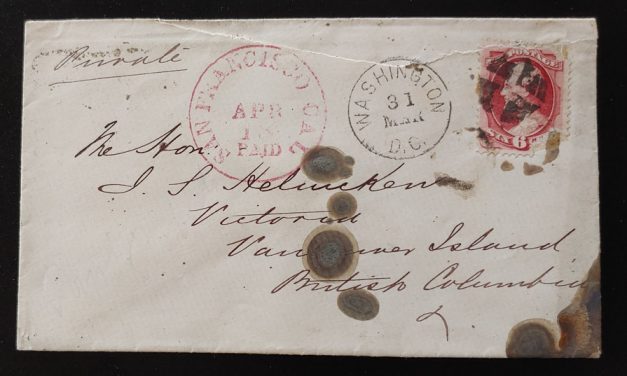 Private
SAN FRANCISCO CAL
APR
13
PAID
WASHINGTON
31
MAR
D.C.
POSTAGE
SIX 6
The Hon.
J. S. Helmcken
Victoria
Vancouver Island
British Columbia